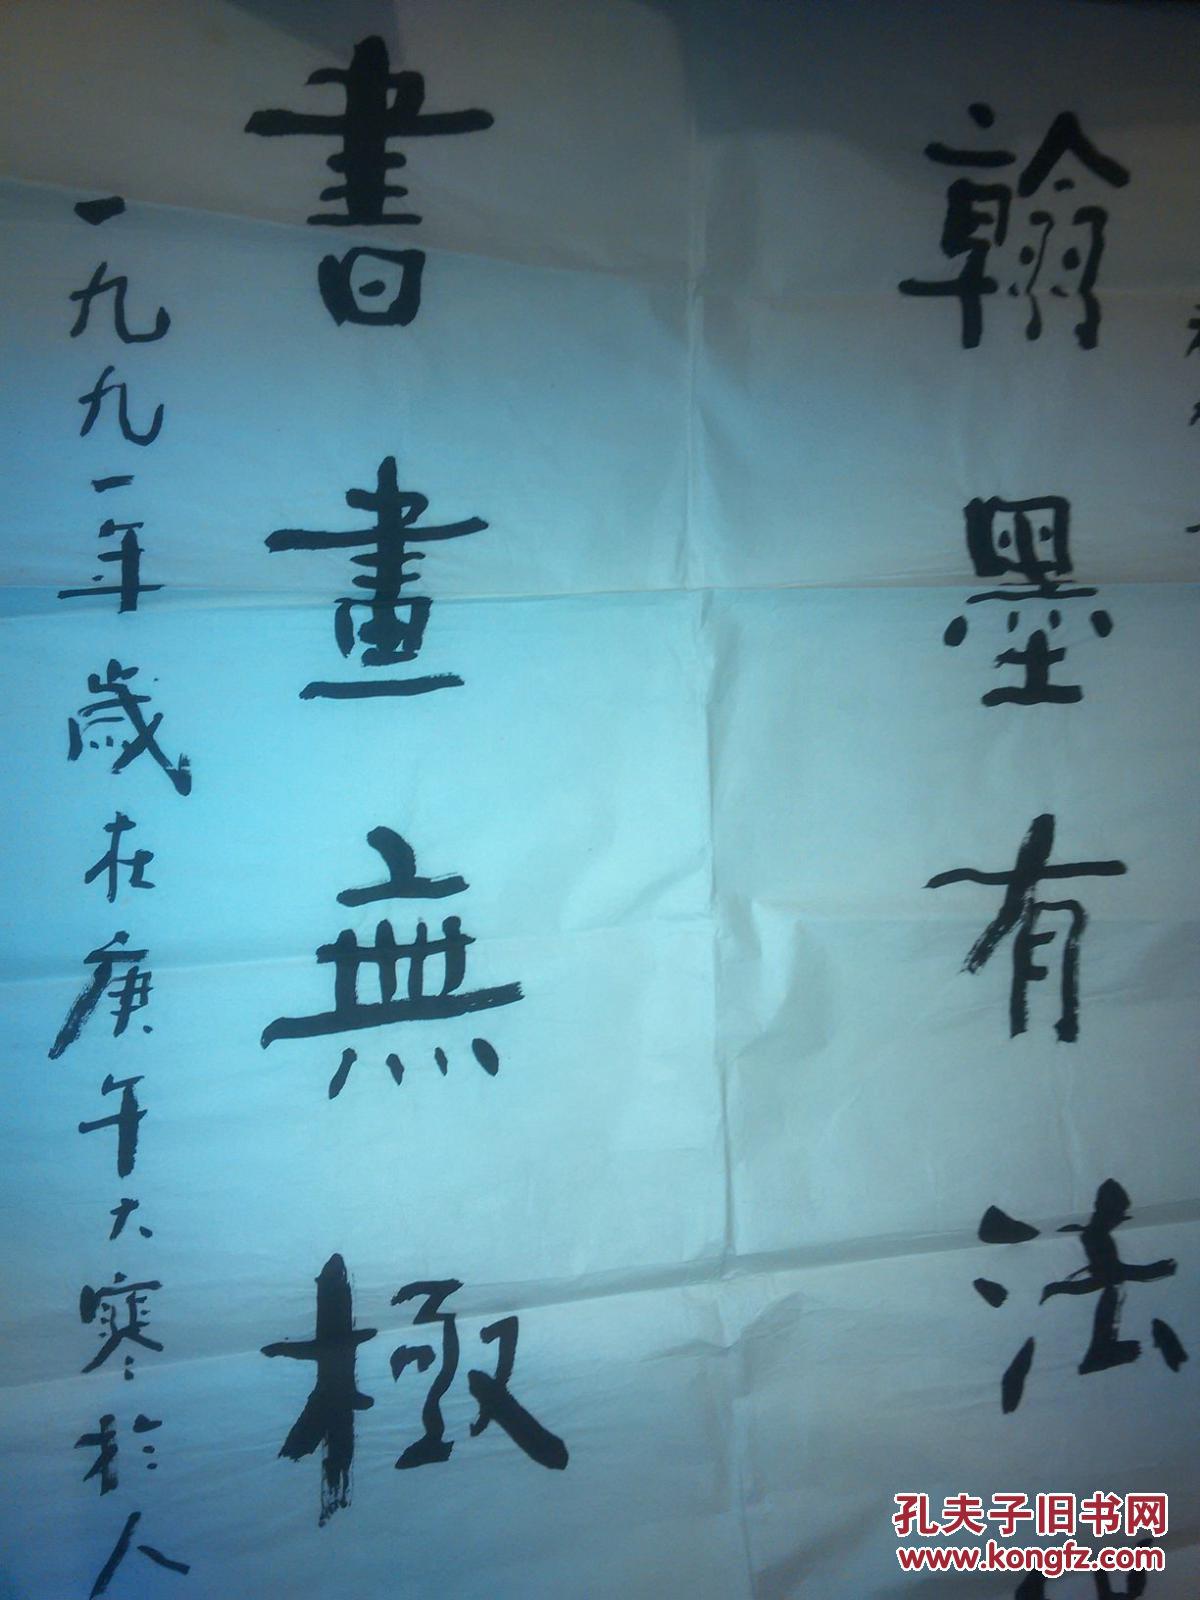 翰墨有法
書畫無極
一九九一年歲在庚午大寒於人
孔夫子旧书网
www.kongfz.com